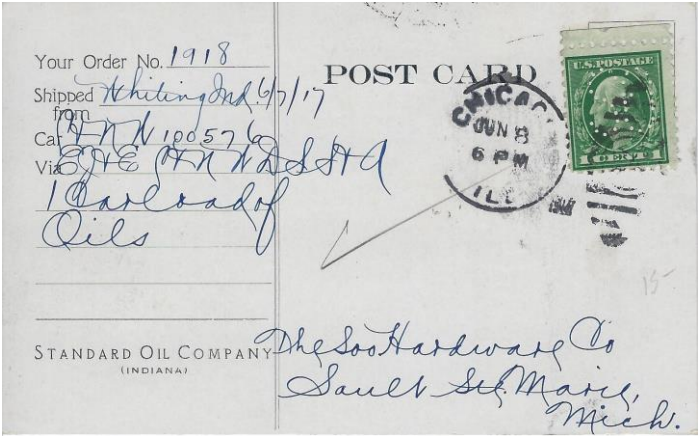 Your Order No. 1918
Shipped from Whiting Ind. 6/7/17
Car 100576
Via E J & E
1 Carload of
Oils
STANDARD OIL COMPANY
(INDIANA)
POST CARD
CHICAGO
JUN 8
6 PM
ILL
U.S. POSTAGE
1 CENT
The Soo Hardware Co
Sault Ste. Marie,
Mich.
15-